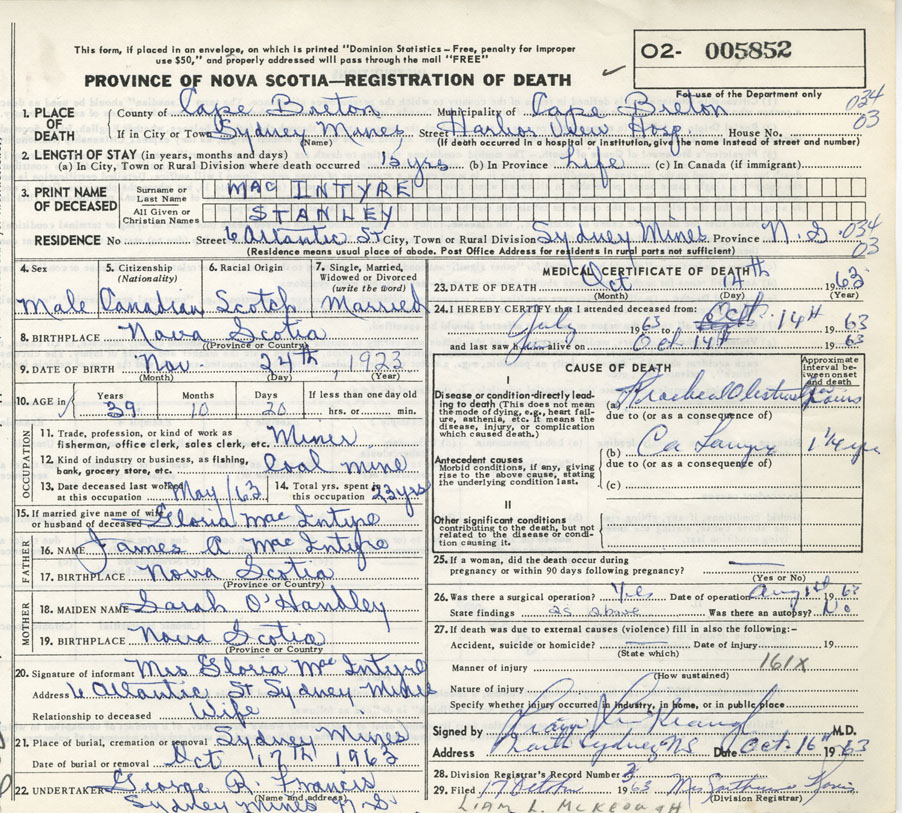 This form, if placed in an envelope, on which is printed "Dominion Statistics – Free, penalty for improper
use $50," and properly addressed will pass through the mail "FREE"
O2- 005852
PROVINCE OF NOVA SCOTIA—REGISTRATION OF DEATH
For use of the Department only
034
03
1. PLACE OF DEATH
County of Cape Breton Municipality of Cape Breton
If in City or Town Sydney Mines Street Harbor View Hosp. House No.
(Name) (If death occurred in a hospital or institution, give the name instead of street and number)
2. LENGTH OF STAY (in years, months and days)
(a) In City, Town or Rural Division where death occurred 15 yrs (b) In Province Life (c) In Canada (if immigrant)
3. PRINT NAME OF DECEASED
Surname or Last Name MAC INTYRE
All Given or Christian Names STANLEY
RESIDENCE No Street 6 Atlantic St City, Town or Rural Division Sydney Mines Province N.S. 034
03
(Residence means usual place of abode. Post Office Address for residents in rural parts not sufficient)
4. Sex Male
5. Citizenship (Nationality) Canadian
6. Racial Origin Scotch
7. Single, Married, Widowed or Divorced (write the word) Married
8. BIRTHPLACE Nova Scotia
(Province or Country)
9. DATE OF BIRTH Nov. 24th 1923
(Month) (Day) (Year)
10. AGE in Years 39 Months 10 Days 20 If less than one day old hrs. or min.
OCCUPATION
11. Trade, profession, or kind of work as
fisherman, office clerk, sales clerk, etc. Miner
12. Kind of industry or business, as fishing,
bank, grocery store, etc. Coal mine
13. Date deceased last worked
at this occupation May/63
14. Total yrs. spent in
this occupation 23 yrs
15. If married give name of wife
or husband of deceased Gloria Mac Intyre
FATHER
16. NAME James A Mac Intyre
17. BIRTHPLACE Nova Scotia
(Province or Country)
MOTHER
18. MAIDEN NAME Sarah O'Handley
19. BIRTHPLACE Nova Scotia
(Province or Country
20. Signature of informant Mrs Gloria Mac Intyre
Address 6 Atlantic St Sydney Mines
Relationship to deceased Wife
21. Place of burial, cremation or removal Sydney Mines
Date of burial or removal Oct 17th 1963
22. UNDERTAKER George R. Francis
(Name and address)
Sydney Mines N.S.
MEDICAL CERTIFICATE OF DEATH
23. DATE OF DEATH Oct 14th 1963
(Month) (Day) (Year)
24. I HEREBY CERTIFY that I attended deceased from:
July 1963 to Oct. 14th 1963
and last saw h alive on Oct 14th 1963
CAUSE OF DEATH
Approximate interval between onset and death
I
Disease or condition directly leading to death (This does not mean the mode of dying, e.g., heart failure, asthenia, etc. It means the disease, injury, or complication which caused death.)
(a) Tracheal Obstruct
due to (or as a consequence of)
Antecedent causes
Morbid conditions, if any, giving rise to the above cause, stating the underlying condition last.
(b) Ca Larynx 1 1/4 yrs
due to (or as a consequence of)
(c)
II
Other significant conditions
contributing to the death, but not related to the disease or condition causing it.
25. If a woman, did the death occur during
pregnancy or within 90 days following pregnancy?
(Yes or No)
26. Was there a surgical operation? Yes Date of operation Aug 1st 1963
State findings as above Was there an autopsy? No
27. If death was due to external causes (violence) fill in also the following:–
Accident, suicide or homicide? Date of injury 19
(State which)
Manner of injury 161X
(How sustained)
Nature of injury
Specify whether injury occurred in industry, in home, or in public place
Signed by M.D.
Address North Sydney NS Date Oct. 16" 1963
28. Division Registrar's Record Number 3
29. Filed 17 October 1963 Mrs
(Division Registrar)
LIAM L. MCKEOUGH